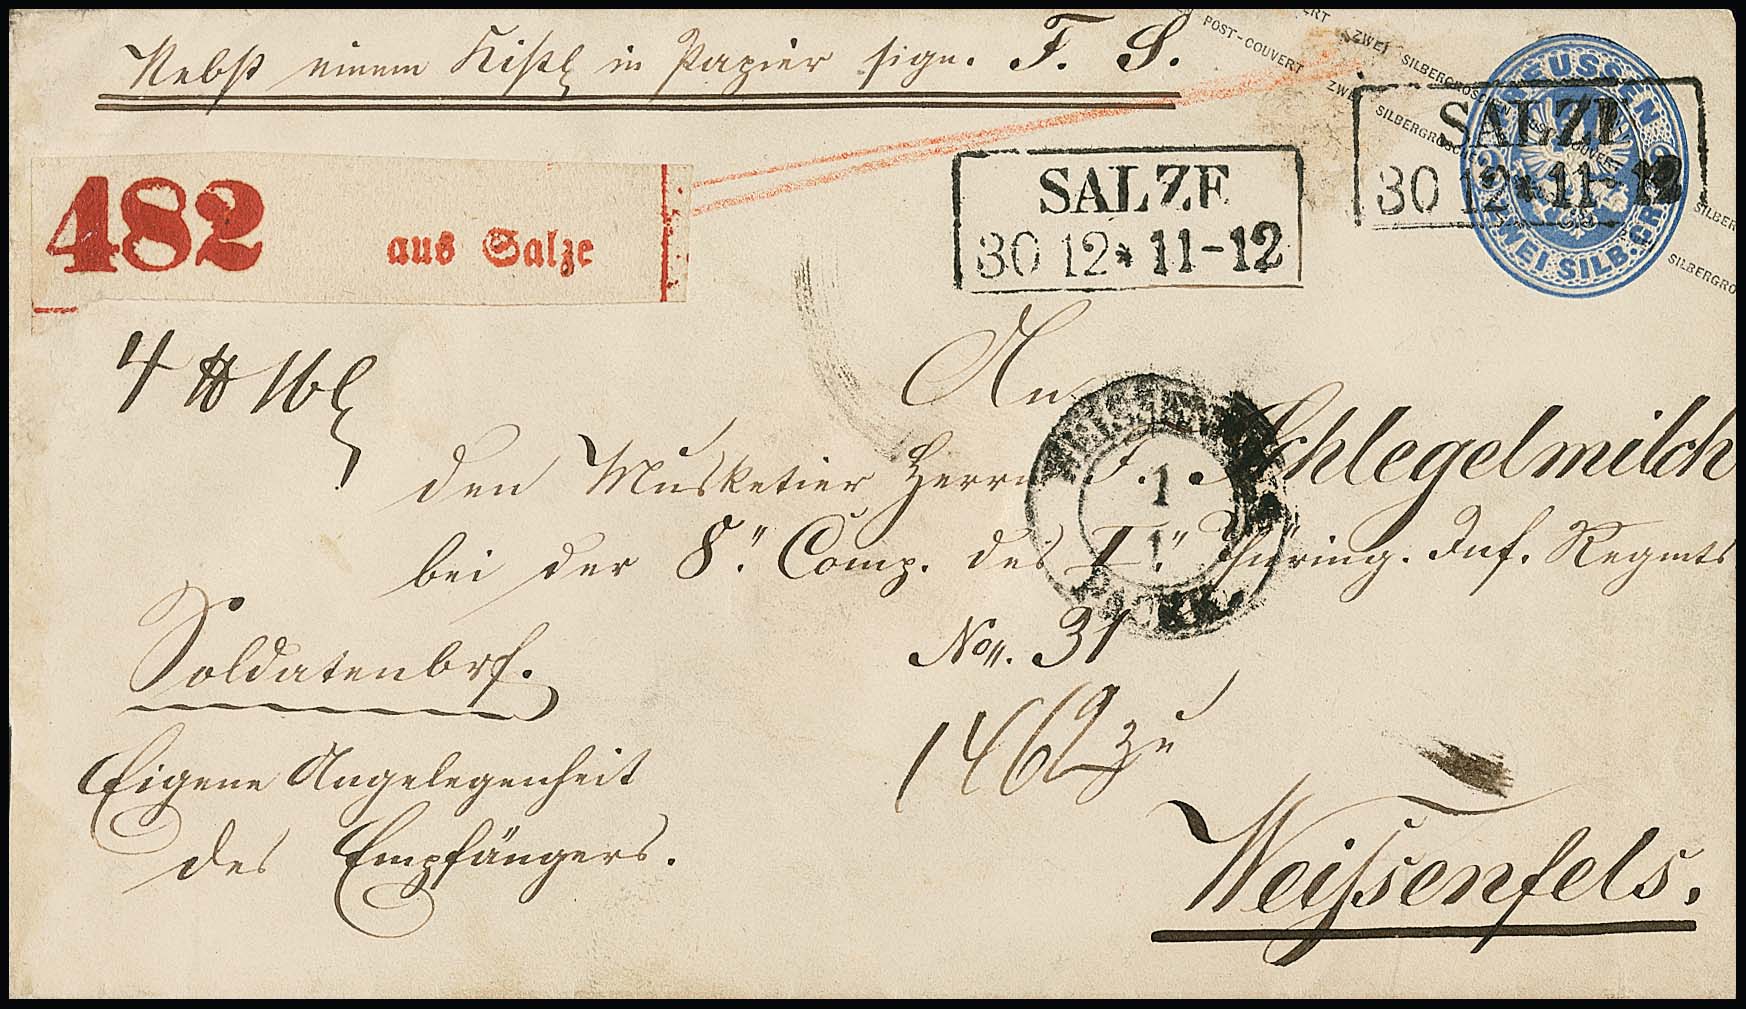 Nebst einem Kistl in Papier sign. F. S.
POST-COUVERT
ZWEI SILBERGROSCHEN POST-COUVERT
ZWEI SILBERGROSCHEN
SILBERGRO
PREUSSEN
ZWEI SILB.GR.
SALZE
30 12 * 11-12
SALZE
30 12 * 11-12
482 aus Salze
4 ℔ 16 l
An
den Musketier Herrn F. Schlegelmilch
WEISSENFELS
1
1
bei der 8". Comp. des I". Thüring. Inf. Regmts
No. 31
Soldatenbrf.
1462 zu
Eigene Angelegenheit
des Empfängers.
Weissenfels.